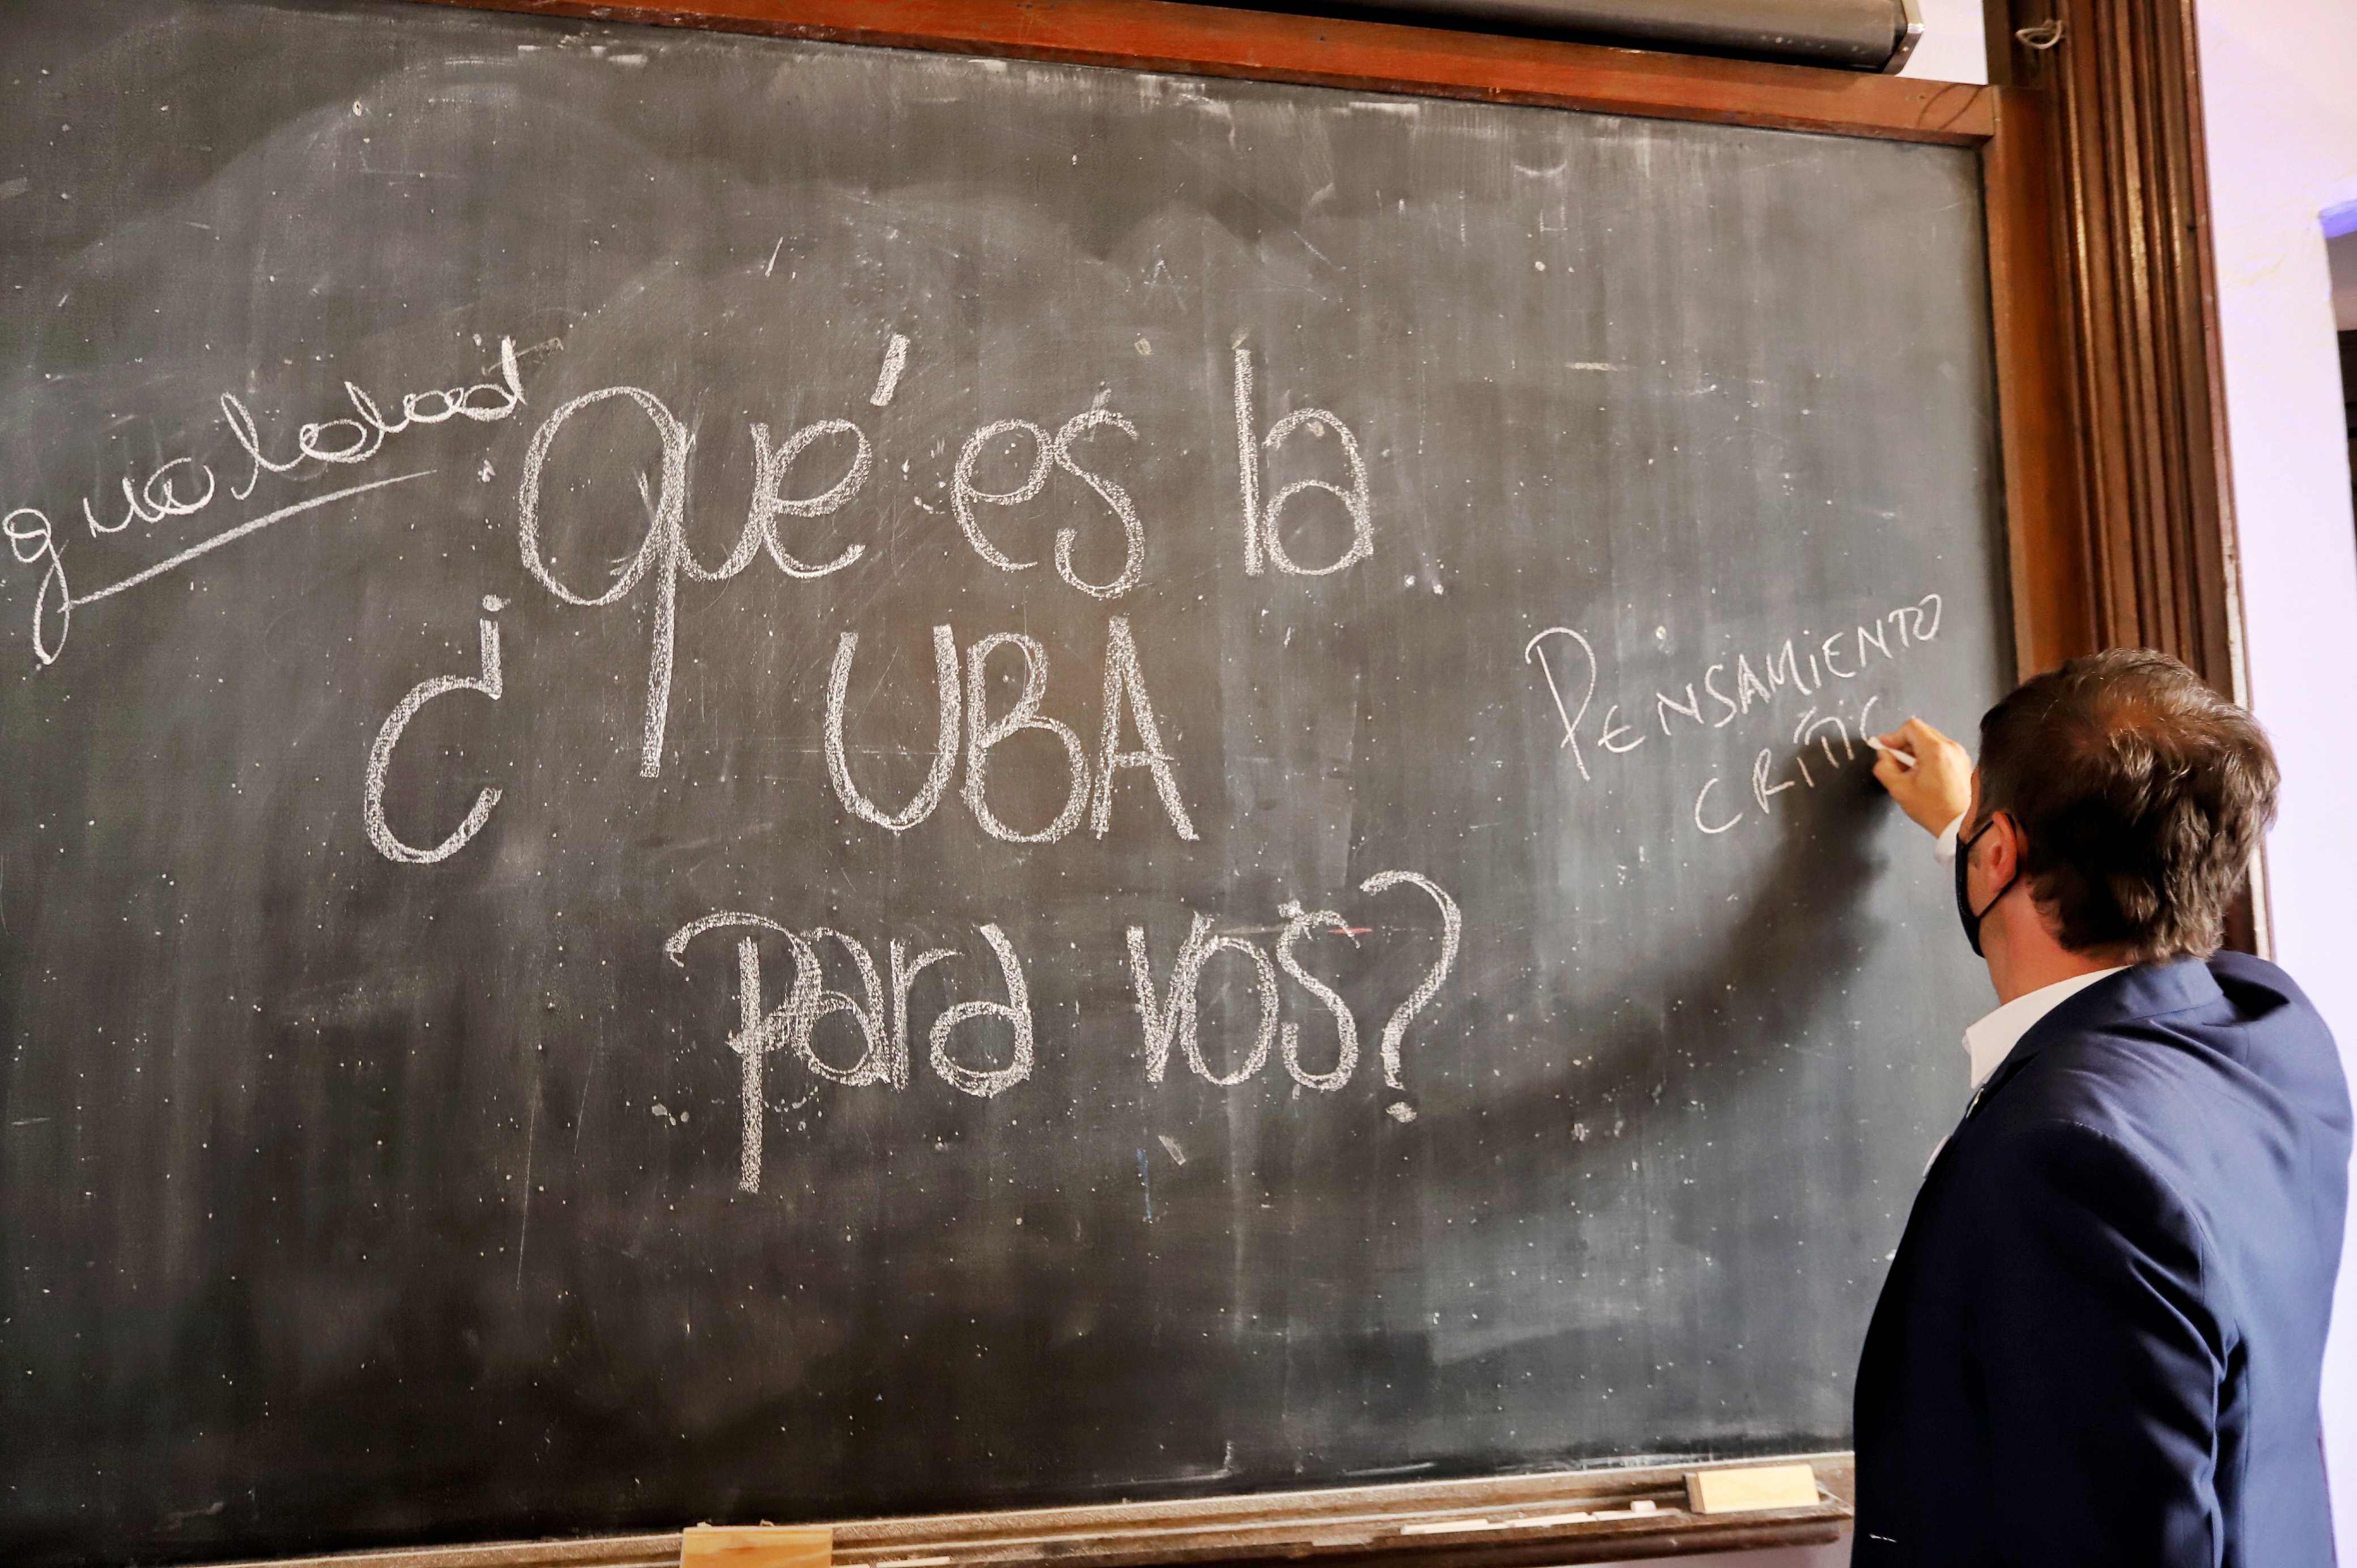 gualdad
¿Qué es la
UBA
para vos?
PENSAMIENTO
CRÍTIC